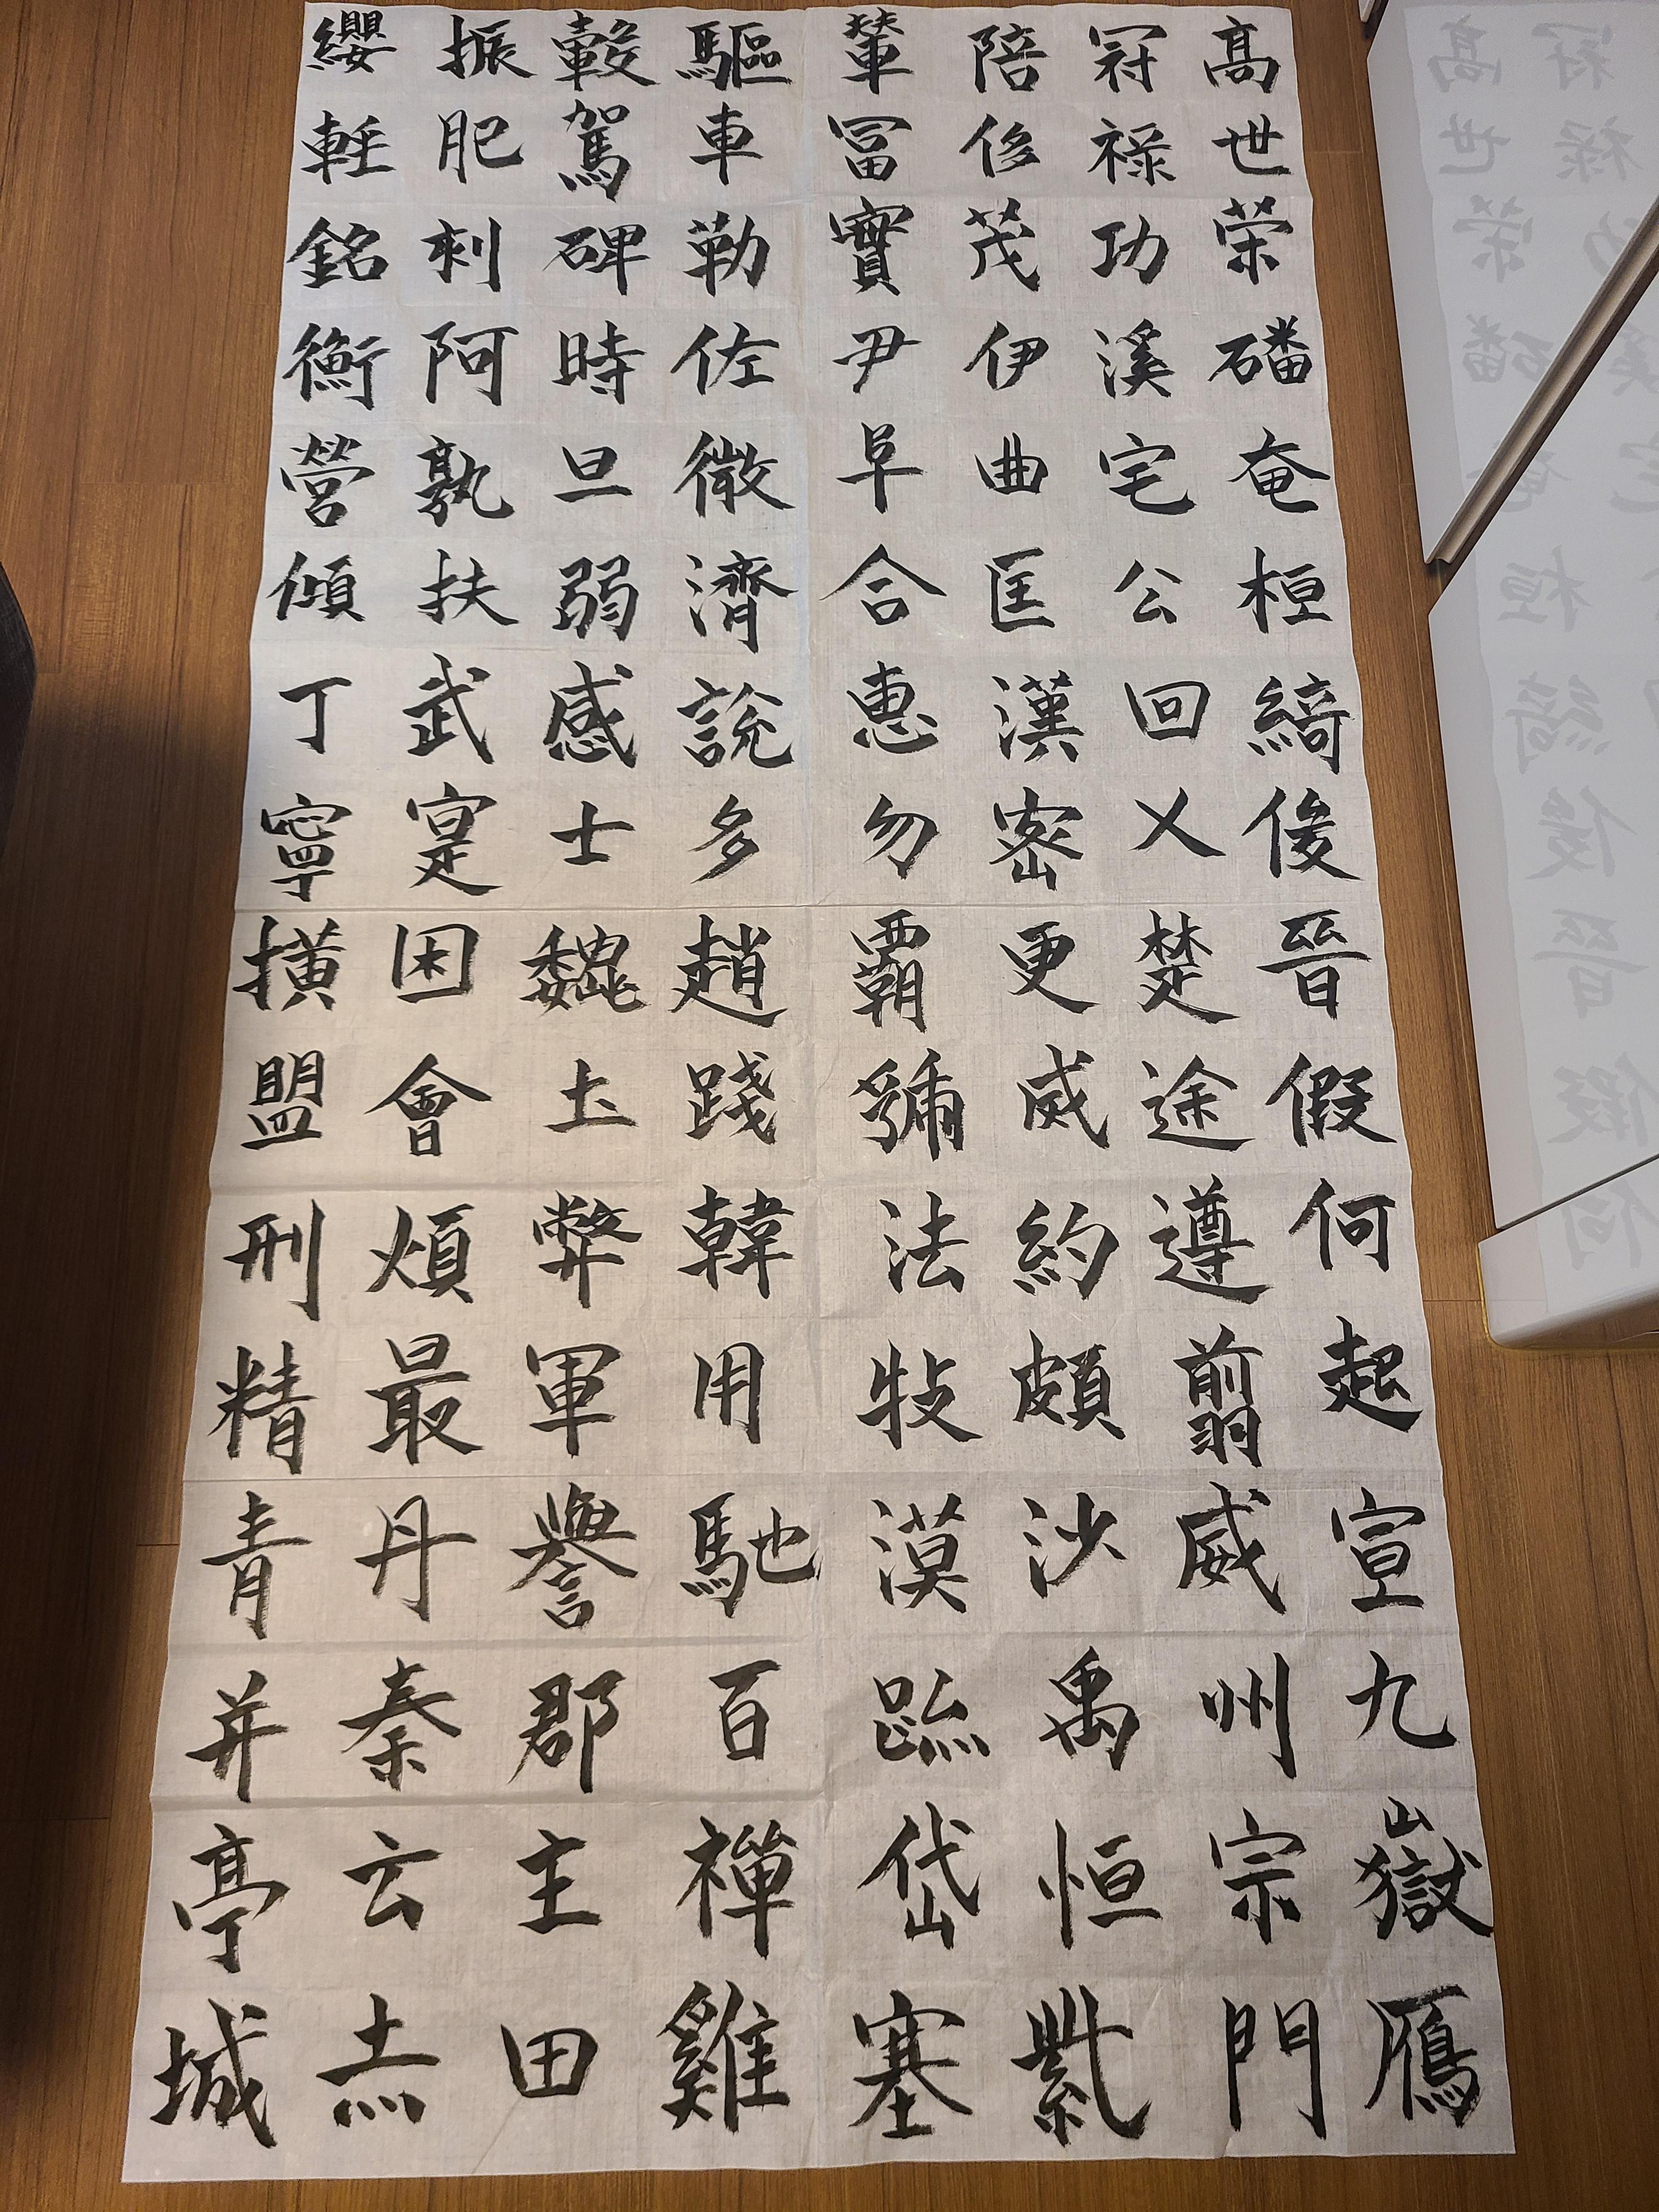 高冠陪輦驅轂振纓
世禄侈富車駕肥輕
榮功茂實勒碑刻銘
磻溪伊尹佐時阿衡
奄宅曲阜微旦孰營
桓公匡合濟弱扶傾
綺回漢惠說感武丁
俊乂密勿多士寔寧
晉楚更霸趙魏困橫
假途烕虢踐土會盟
何遵約法韓弊煩刑
起翦頗牧用軍最精
宣威沙漠馳譽丹青
九州禹跡百郡秦并
嶽宗恒岱禪主云亭
鴈門紫塞雞田赤城